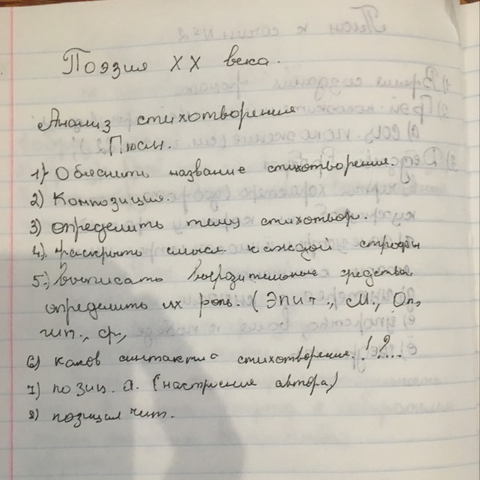 Поэзия XX века.
Анализ стихотворения
План.
1) Объяснить название стихотворения.
2) Композиция.
3) определить тему стихотвор.
4) раскрыть смысл каждой строфы
5) выписать выразительные средства,
определить их роль. (Эпит., М., Ол.,
гип., ср.,
6) каков синтаксис стихотворения. !, ?, ...
7) позиц. а. (настроение автора)
8) позиция чит.